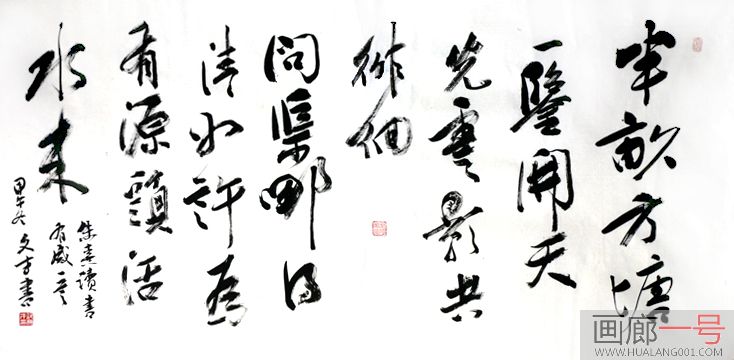 半畝方塘
一鑒開天
光雲影共
徘徊
問渠哪得
清如許為
有源頭活
水来
朱熹讀書
有感
甲午冬文方書
画廊一号
WWW.HUALANG001.COM